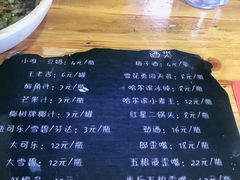 小唯·豆奶：4元/瓶
王老吉：6元/罐
酸角汁：3元/瓶
芒果汁：3元/瓶
椰树牌椰汁：3元/瓶
可乐/雪碧/芬达：3元/瓶
大可乐：12元/瓶
大雪碧：12元/瓶
酒类
梅子酒：4元/瓶
雪花勇闯天涯：8元/瓶
哈尔滨冰纯：8元/瓶
哈尔滨小麦王：12元/瓶
红星二锅头：8元/瓶
劲酒：16元/瓶
郎歪嘴：22元/瓶
五粮液歪嘴：22元/瓶